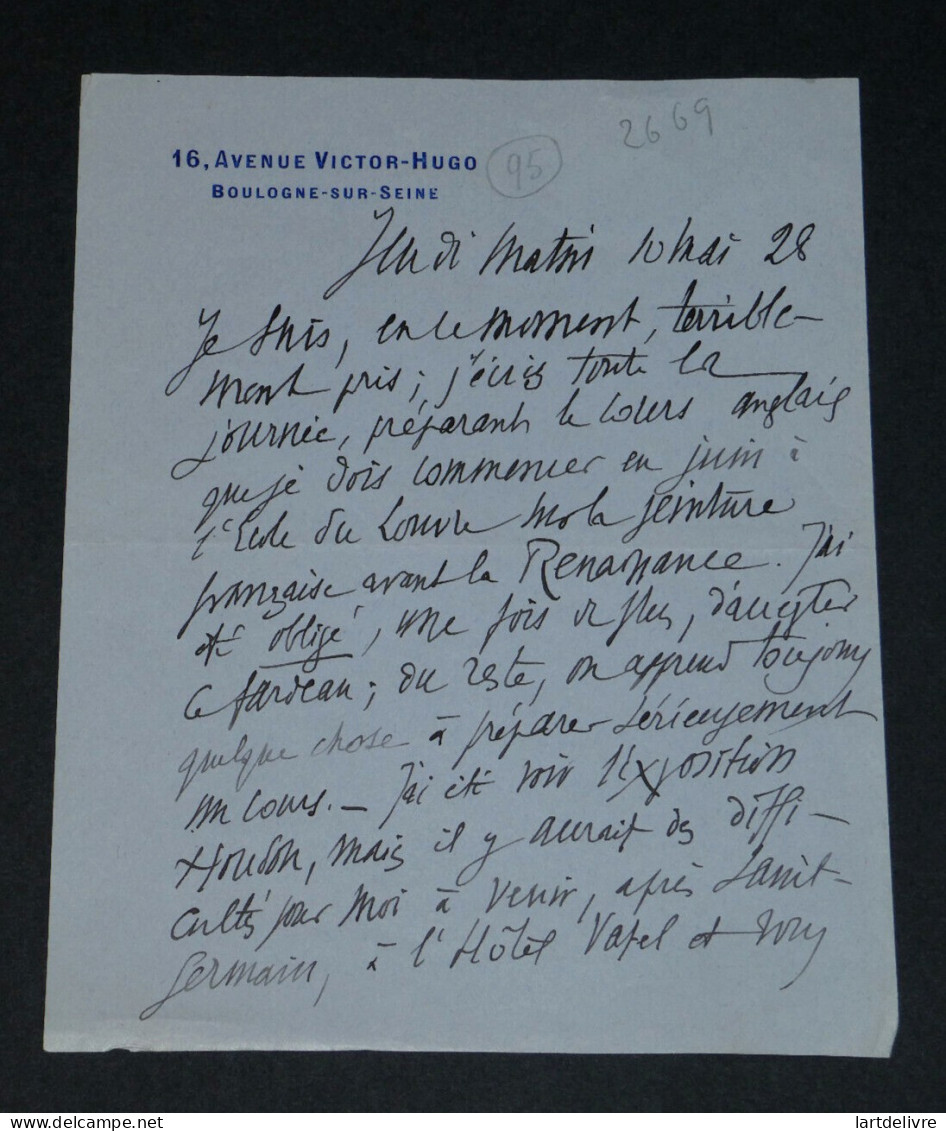 2669
16, AVENUE VICTOR-HUGO
95
BOULOGNE-SUR-SEINE
Jeudi matin 10 mai 28
Je suis, en ce moment, terrible-
ment pris; j'écris toute la
journée, préparant le cours anglais
que je dois commencer en juin à
l'Ecole du Louvre sur la peinture
française avant la Renaissance. J'ai
été obligé, une fois de plus, d'accepter
ce fardeau; du reste, on apprend toujours
quelque chose à préparer sérieusement
un cours. - J'ai été voir l'Exposition
Houdon, mais il y aurait des diffi-
cultés pour moi à venir, après Saint-
Germain, à l'Hôtel Vatel et vous
lartdelivre